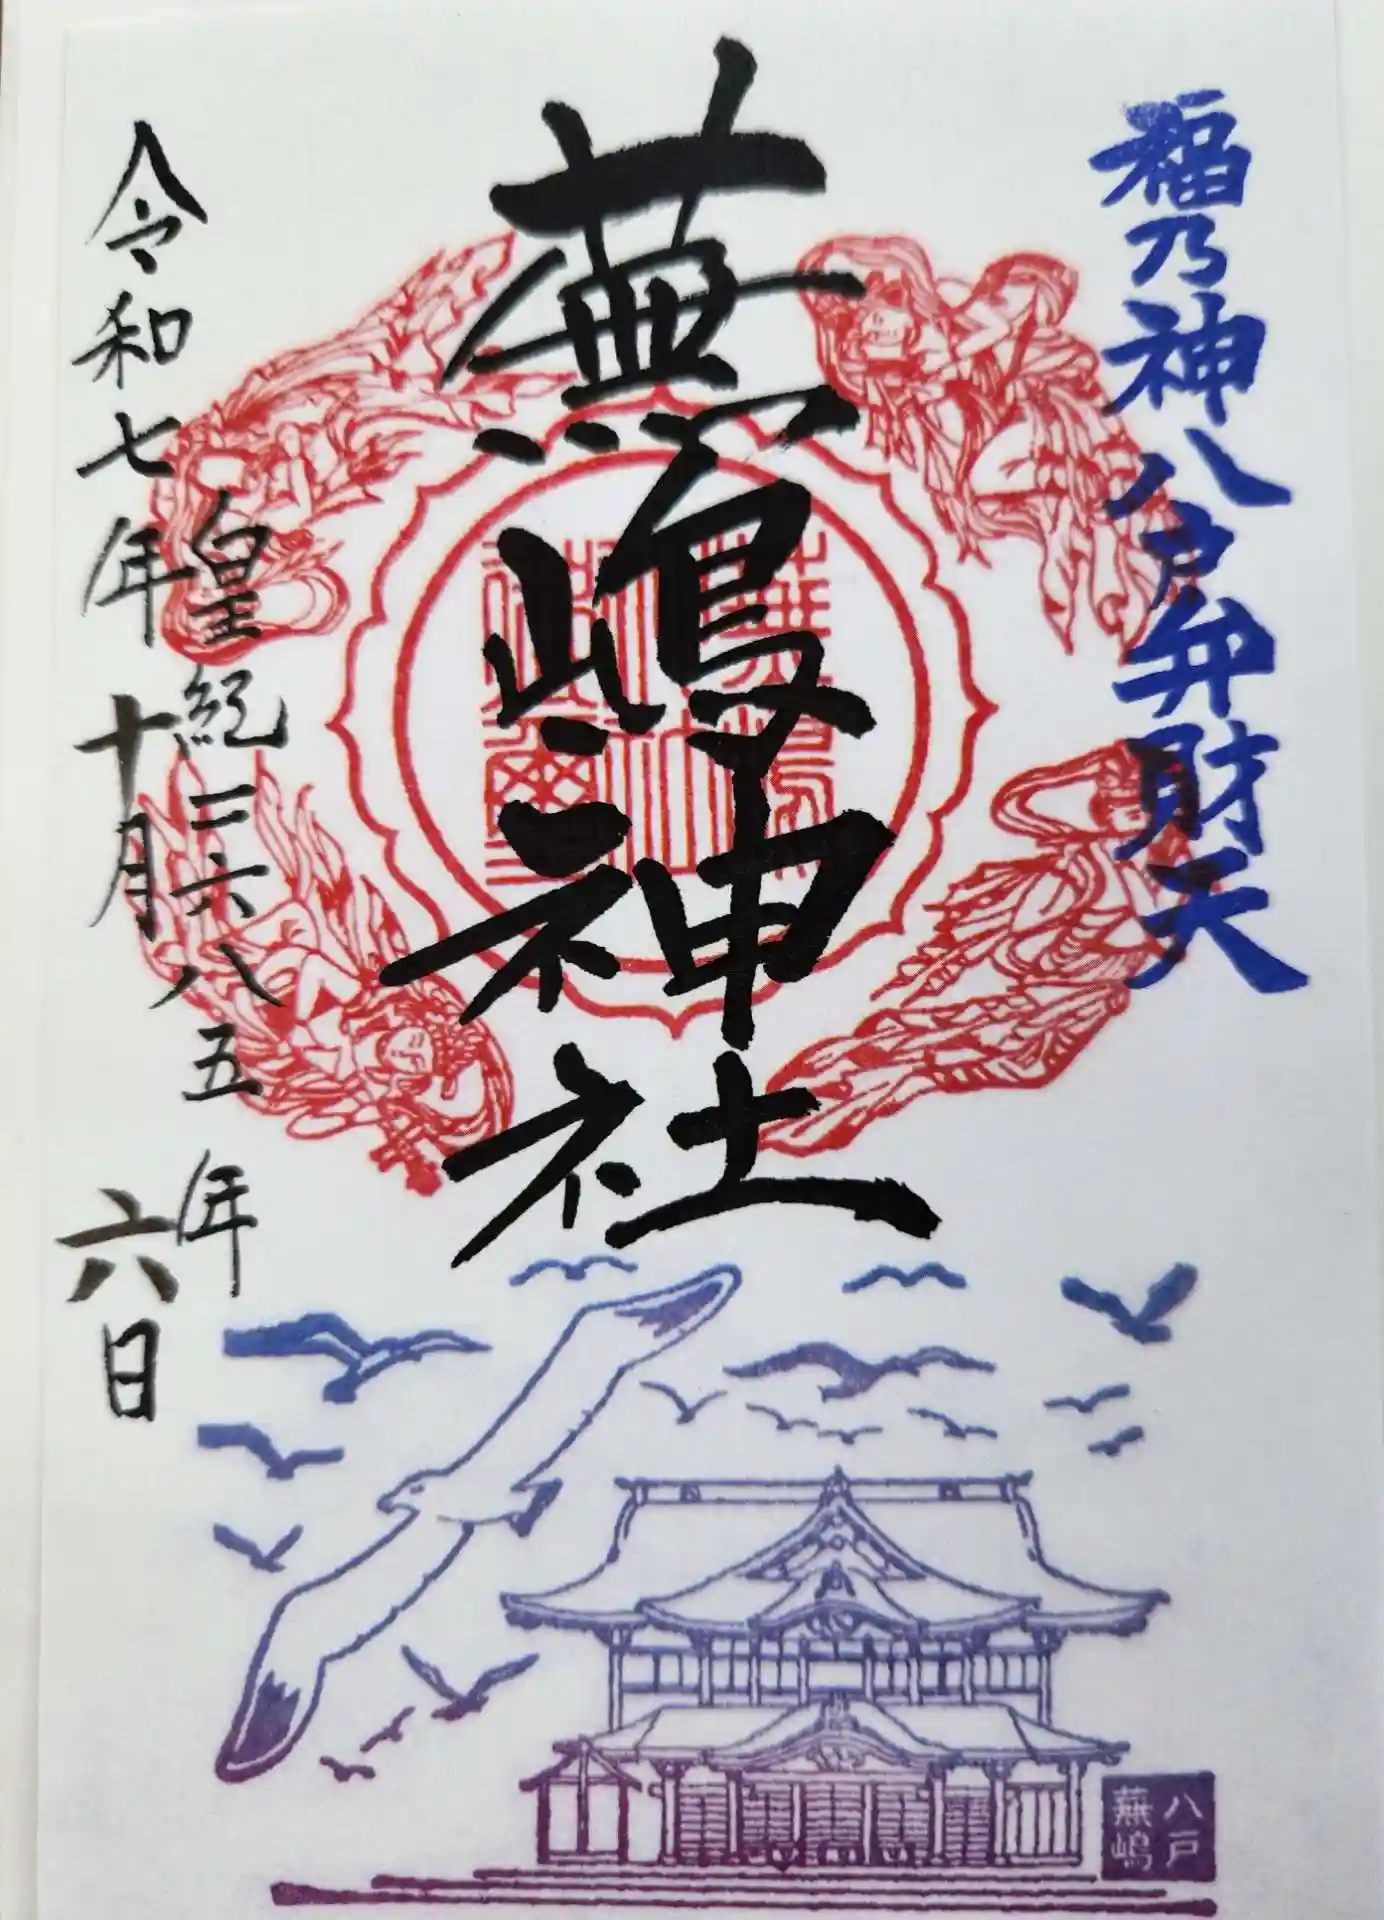 福乃神八戸弁財天
蕪嶋神社
皇紀二六八五年
令和七年十月六日
八戸
蕪嶋